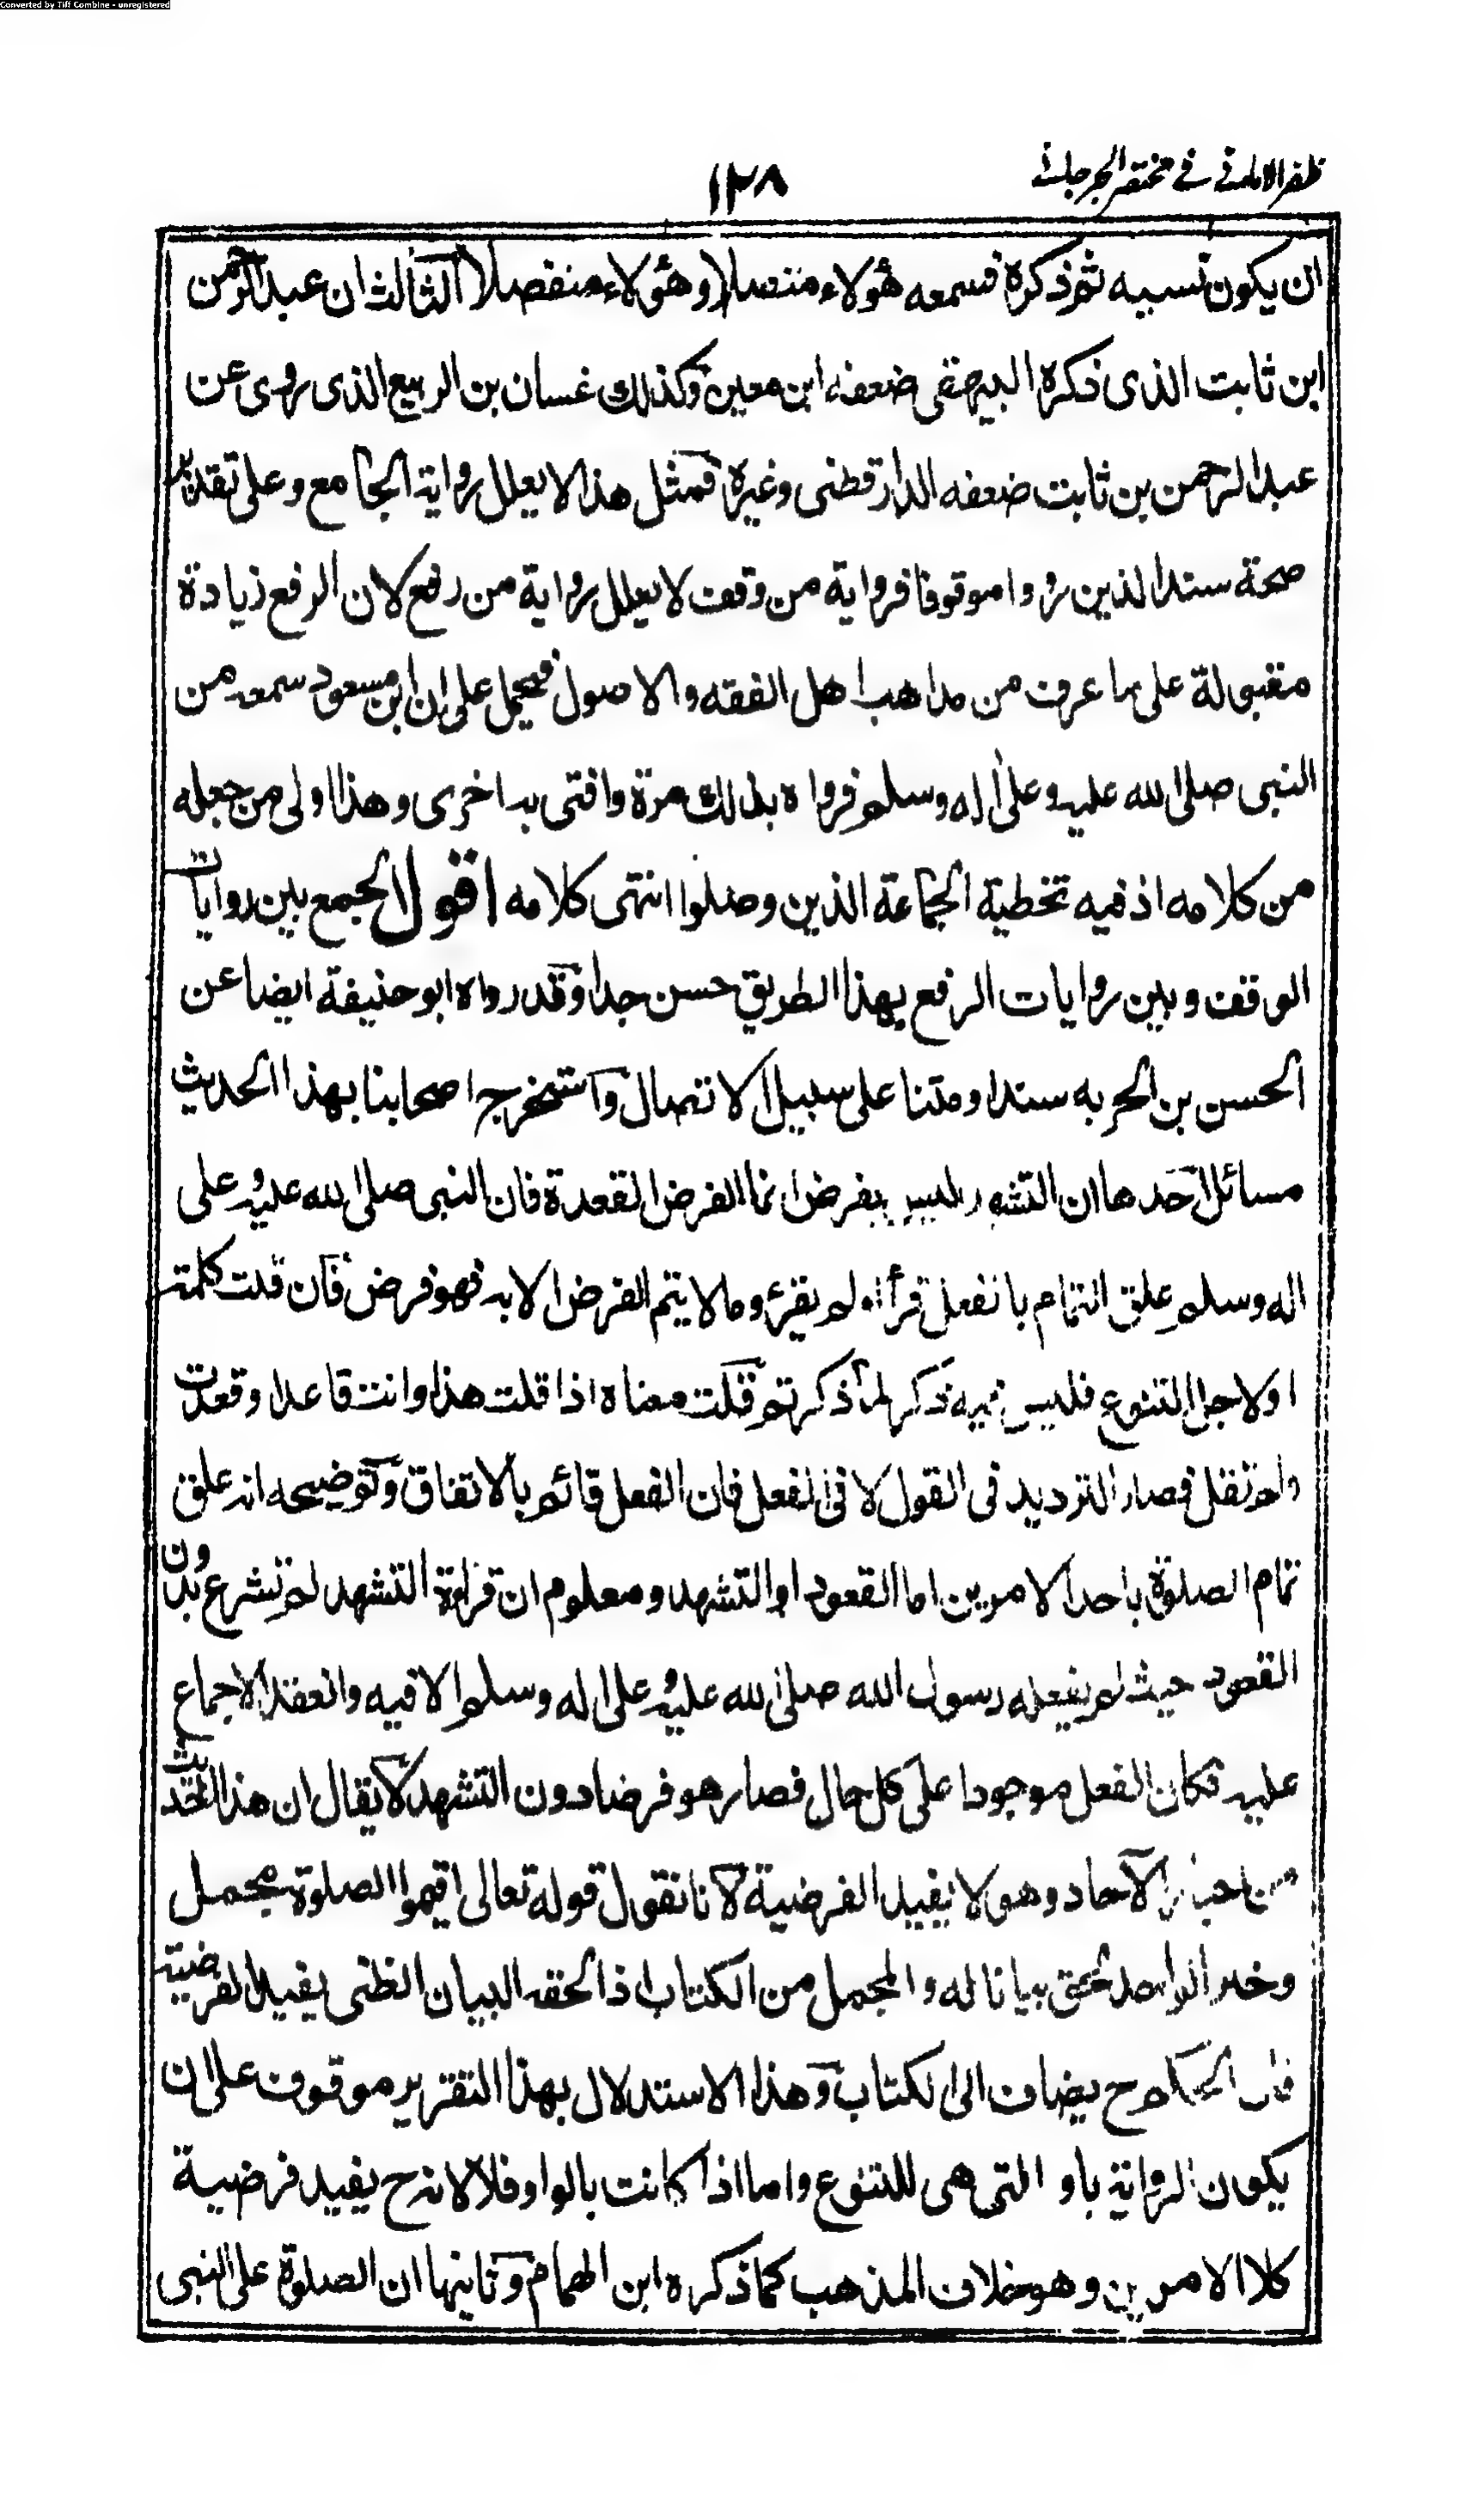 Converted by Tiff Combine - unregistered
ظفر الامانى فى مختصر الجرجانى
١٢٨
ان يكون نسيه ثم ذكره فسمعه هؤلاء متصلا وهؤلاء منفصلا الثالث ان عبد الرحمن
ابن ثابت الذى ذكره البيهقى ضعفه ابن معين وكذلك غسان بن الربيع الذى روى عن
عبد الرحمن بن ثابت ضعفه الدارقطنى وغيره فمثل هذا لا يعلل رواية الجامع وعلى تقدير
صحة سند الذين رووا موقوفا فرواية من وقف لا يعلل رواية من رفع لان الرفع زيادة
مقبولة على ما عرف من مذاهب اهل الفقه والاصول فيحمل على ان ابن مسعود سمعه من
النبى صلى الله عليه وعلى اله وسلم فرواه بذلك مرة وافتى به اخرى وهذا اولى من جعله
من كلامه اذ فيه تخطية الجماعة الذين وصلوا انتهى كلامه اقول الجمع بين روايات
الوقف وبين روايات الرفع بهذا الطريق حسن جدا وقد رواه ابو حنيفة ايضا عن
الحسن بن الحر به سندا ومتنا على سبيل الاتصال واستخرج اصحابنا بهذا الحديث
مسائل احدها ان التشهد ليس بفرض انما الفرض القعدة فان النبى صلى الله عليه وعلى
اله وسلم علق التمام بالفعل قرأ او لم يقرء وما لا يتم الفرض الا به فهو فرض فان قلت كلمة
او لاجل التنوع فليس فيه ذكر لما ذكرتم قلت معناه اذا قلت هذا وانت قاعد او قعدت
ولم تقل فصار الترديد فى القول لا فى الفعل فان الفعل قائم بالاتفاق وتوضيحه انه علق
تمام الصلوة باحد الامرين اما القعود او التشهد ومعلوم ان قراءة التشهد لم تشرع بدون
القعود حيث لم يفعله رسول الله صلى الله عليه وعلى اله وسلم الا فيه وانعقد الاجماع
عليه فكان الفعل موجودا على كل حال فصار هو فرضا دون التشهد لا يقال ان هذا الحديث
من اخبار الآحاد وهو لا يفيد الفرضية لانا نقول قوله تعالى اقيموا الصلوة مجمل
وخبر الواحد لحق بيانا له والمجمل من الكتاب اذا لحقه البيان الظنى يفيد الفرضية
فان الحكم ح يضاف الى الكتاب وهذا الاستدلال بهذا التقرير موقوف على ان
يكون الرواية باو التى هى للتنوع واما اذا كانت بالواو فلا لانه ح يفيد فرضية
كلا الامرين وهو خلاف المذهب كما ذكره ابن الهمام وثانيها ان الصلوة على النبى